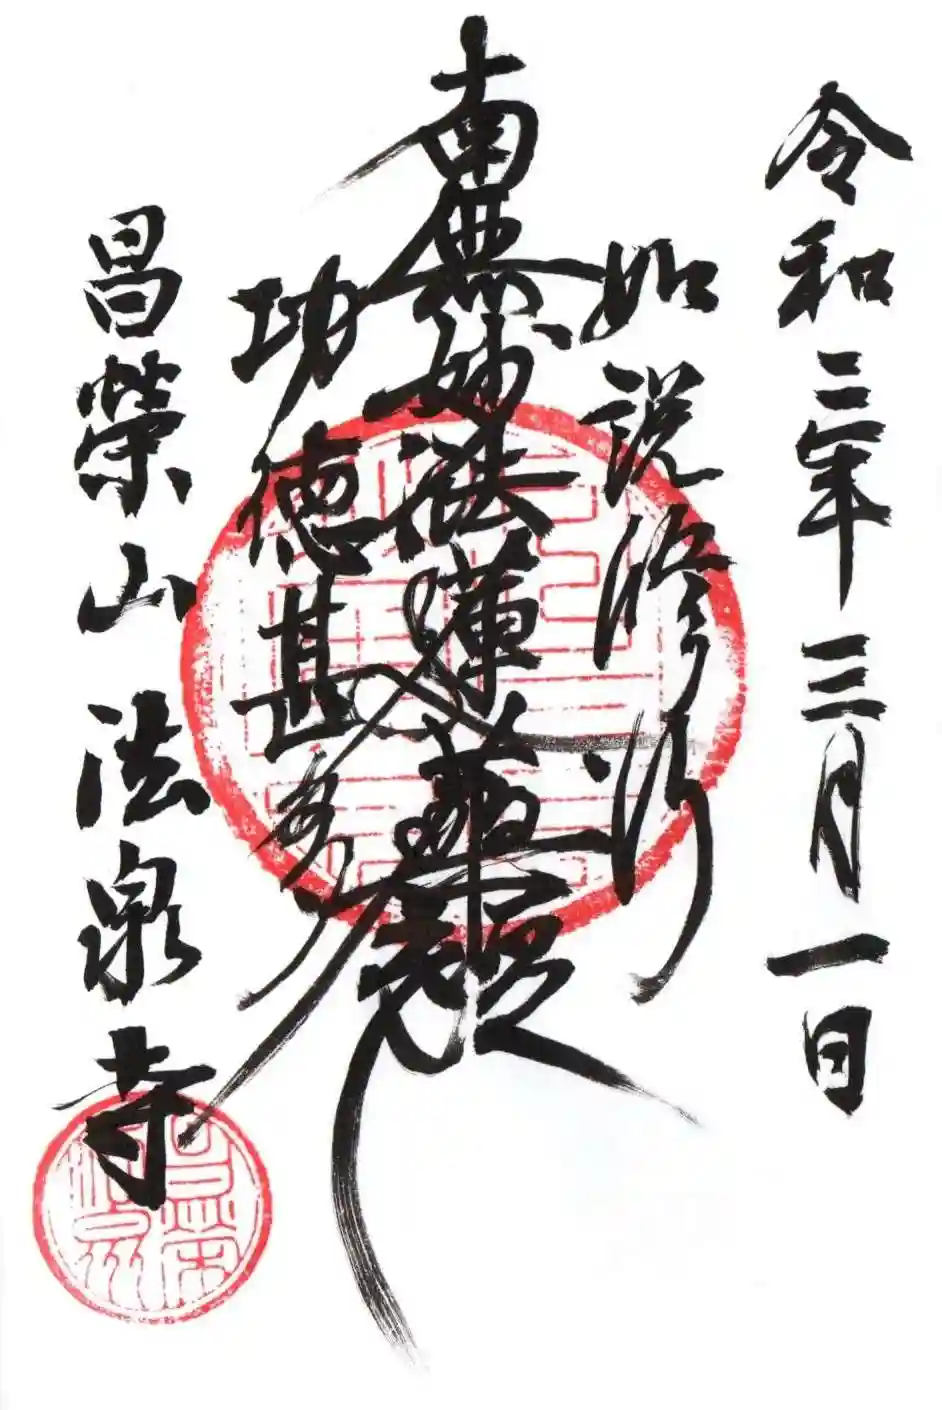 令和三年三月一日
如説修行
南無妙法蓮華経
功徳甚多
昌榮山 法泉寺